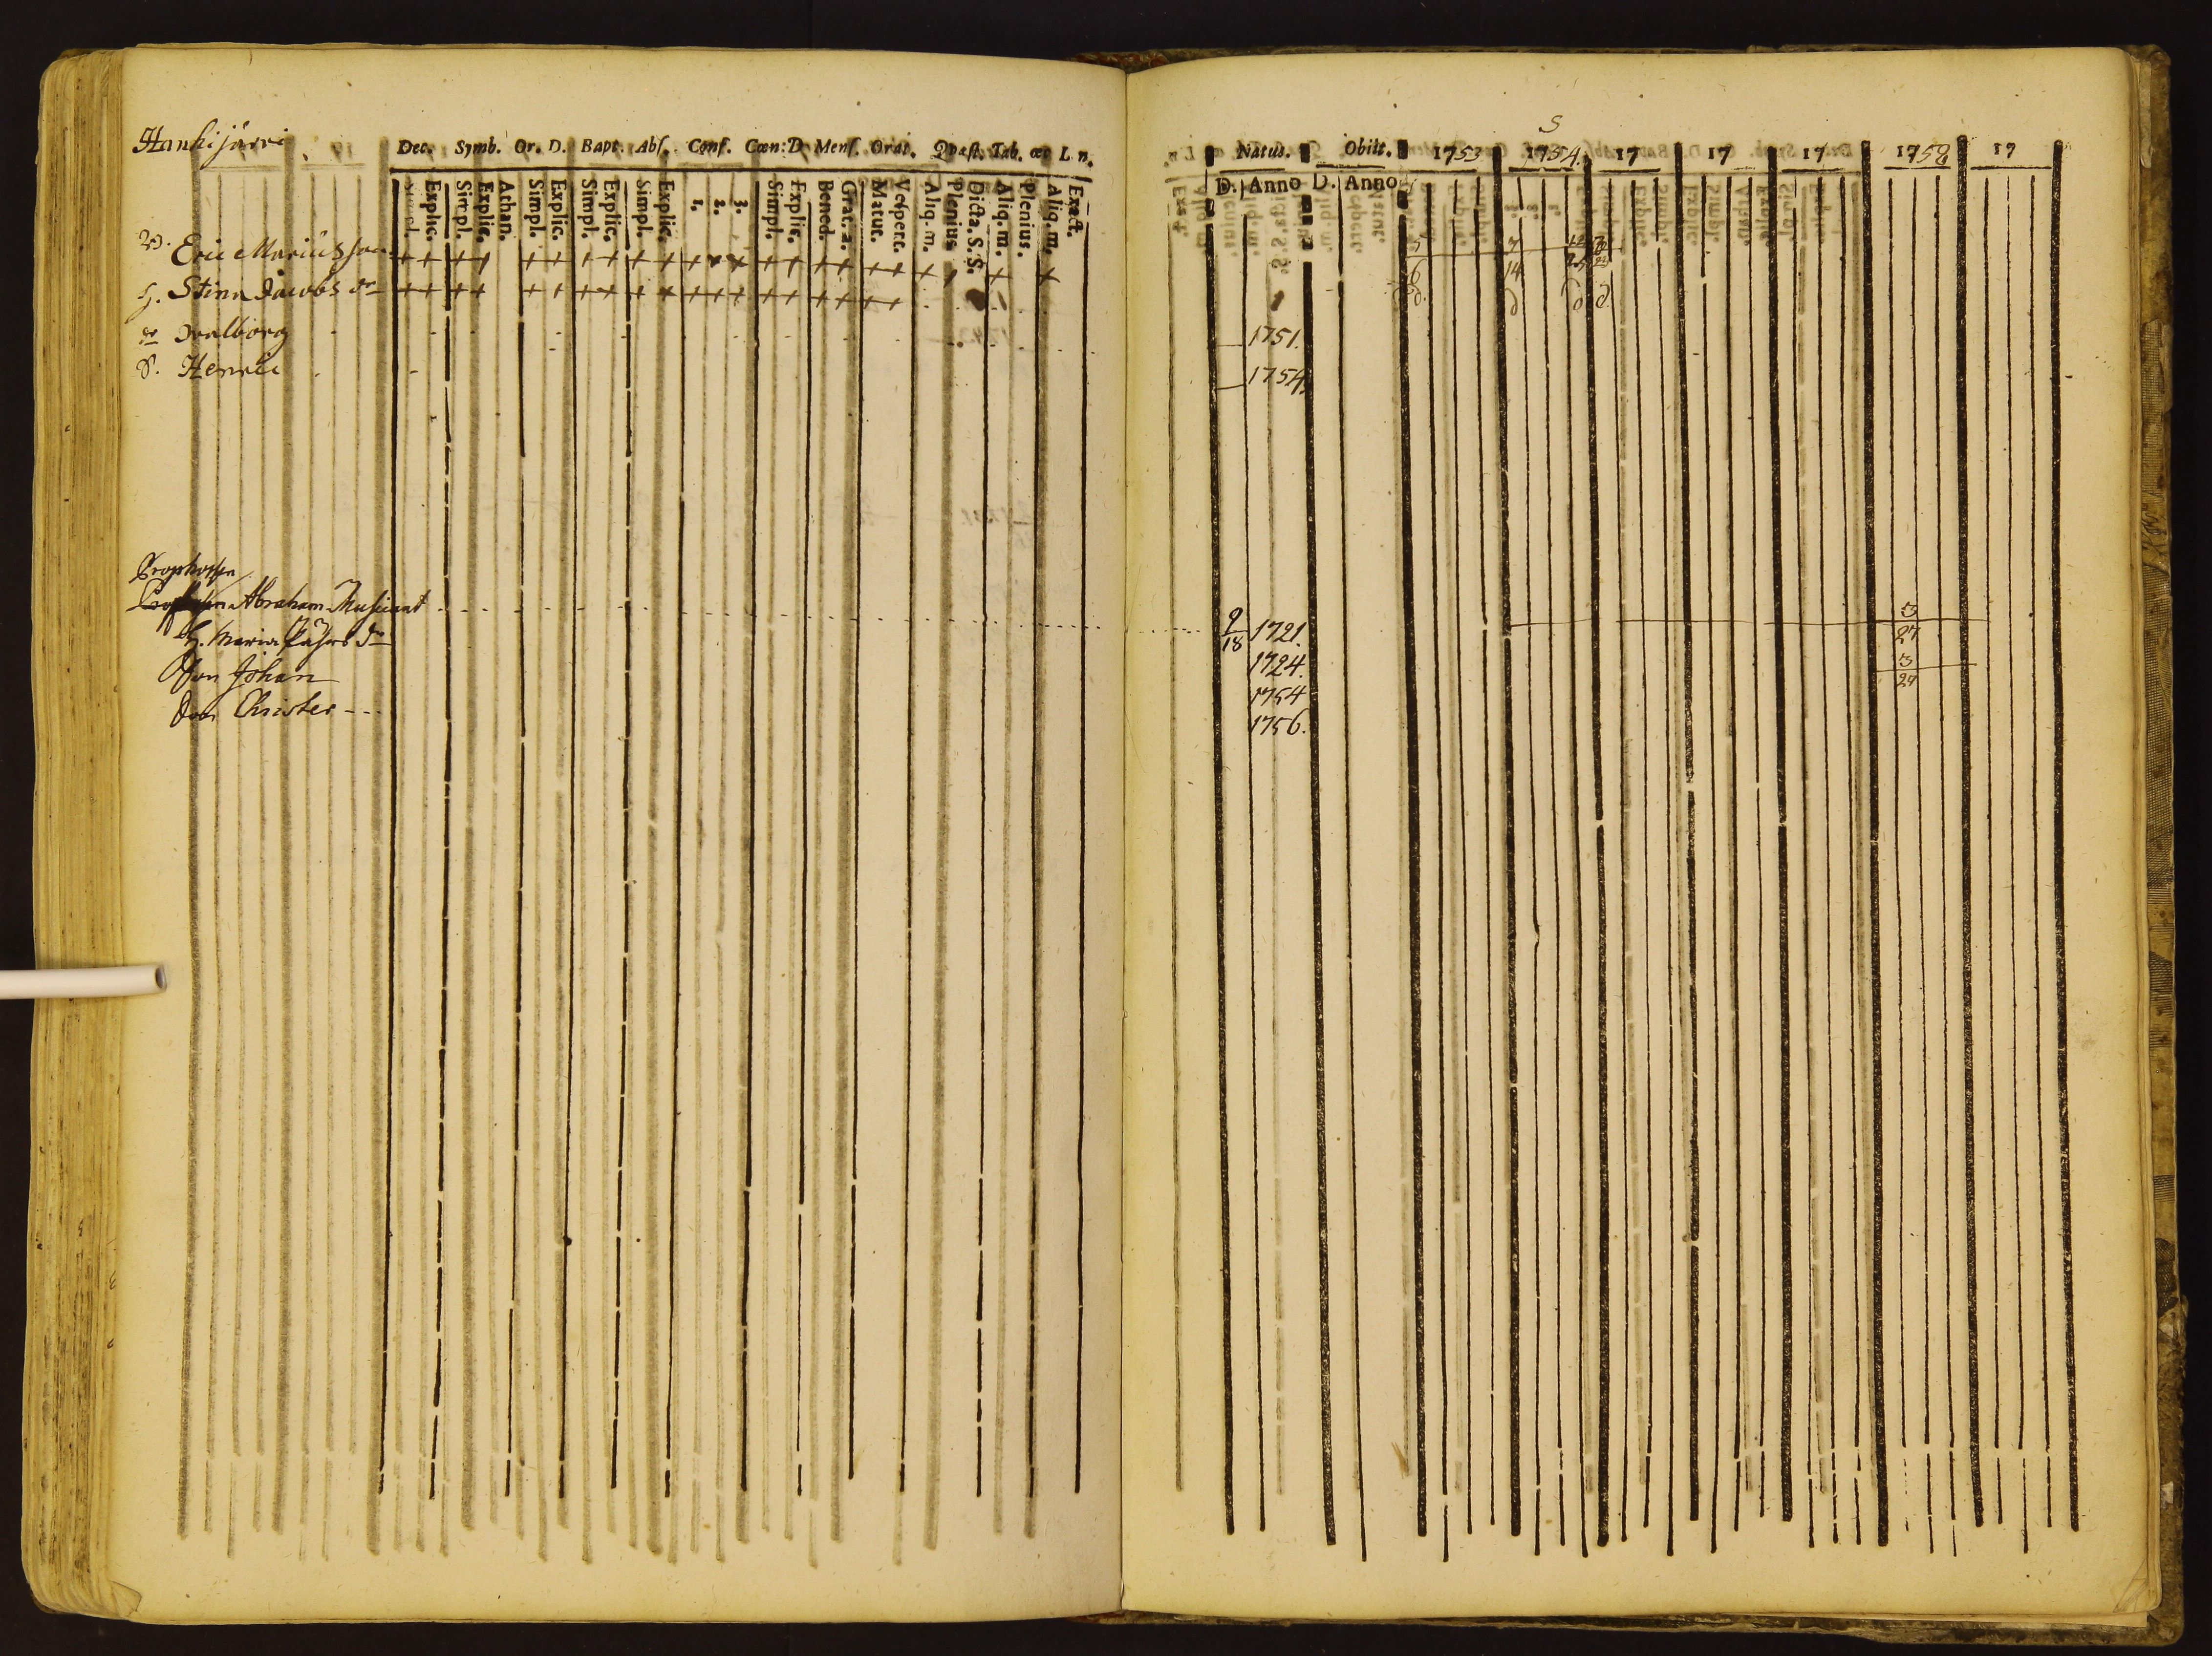 Hanhijärvi
Dec. Symb. Or. D. Bapt. Abs. Conf. Cœn: D. Mens. Orat. Qvæst. Tab. œc. L n.
Simpl. Explic. Simpl. Explic. Athan. Simpl. Explic. Simpl. Explic. Simpl. Explic. 1. 2. 3. Simpl. Explic. Bened. Grat. a. Matut. Vespert. Aliq. m. Plenius Dicta. S. S. Aliq. m. Plenius. Aliq. m. Exact.
Eric Mariusson + + + + + + + + + + + + + + + + + + + + + +
H. Stina Jacobs dr + + + + + + + + + + + + + + + + + + +
dr Walborg
S. Henric
Prophossen
Abraham Musicant
H. Maria Påhls dr
Son Johan
Son Christer
S
Natus. Obiit. 1753 1754. 17 17 17 1758 17
D. Anno D. Anno
5 7
6 14 25
1751.
1754.
9/18 1721. 3/27
1724. 3/27
1754
1756.